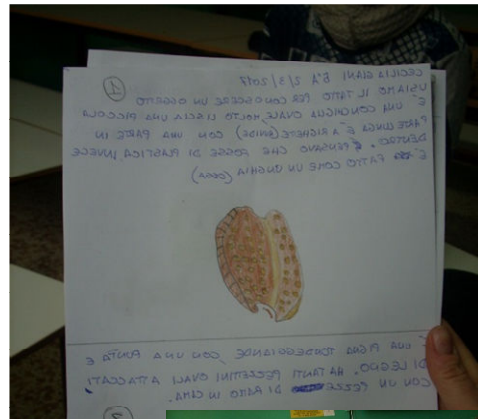 CECILIA GIANI 5°A 2/3/2017 1
USIAMO IL TATTO PER CONOSCERE UN OGGETTO
E' UNA CONCHIGLIA OVALE, MOLTO LISCIA UNA PICCOLA
PARTE LUNGA E' A RIGHETTE CON UNA PARTE IN
DENTRO. PENSAVO CHE FOSSE DI PLASTICA INVECE
E' FATTO COME UN UNGHIA
E' UNA PIGNA TONDEGGIANTE, CON UNA PUNTA E
DI LEGNO. HA TANTI PEZZETTINI OVALI ATTACCATI
CON UN PEZZO DI RAMO IN CIMA.